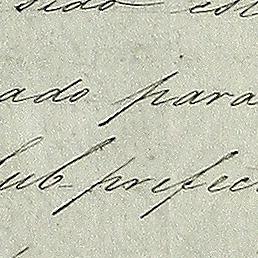 sido est
ado para
sub-prefec